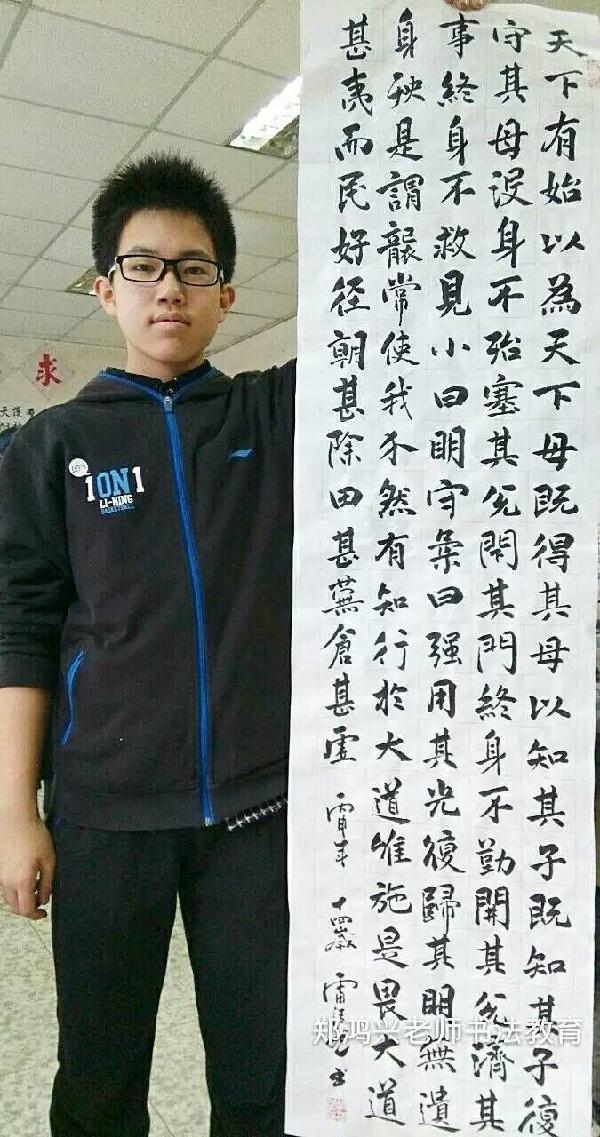 天下有始以為天下母既得其母以知其子既知其子復
守其母没身不殆塞其兌閉其門終身不勤開其兌濟其
事終身不救見小曰明守柔曰强用其光復歸其明無遺
身殃是謂襲常使我介然有知行於大道唯施是畏大道
甚夷而民好径朝甚除田甚蕪倉甚虚 十四歲 书
求
1ON1
LI-NING
BASKETBALL
郑鸿兴老师书法教育